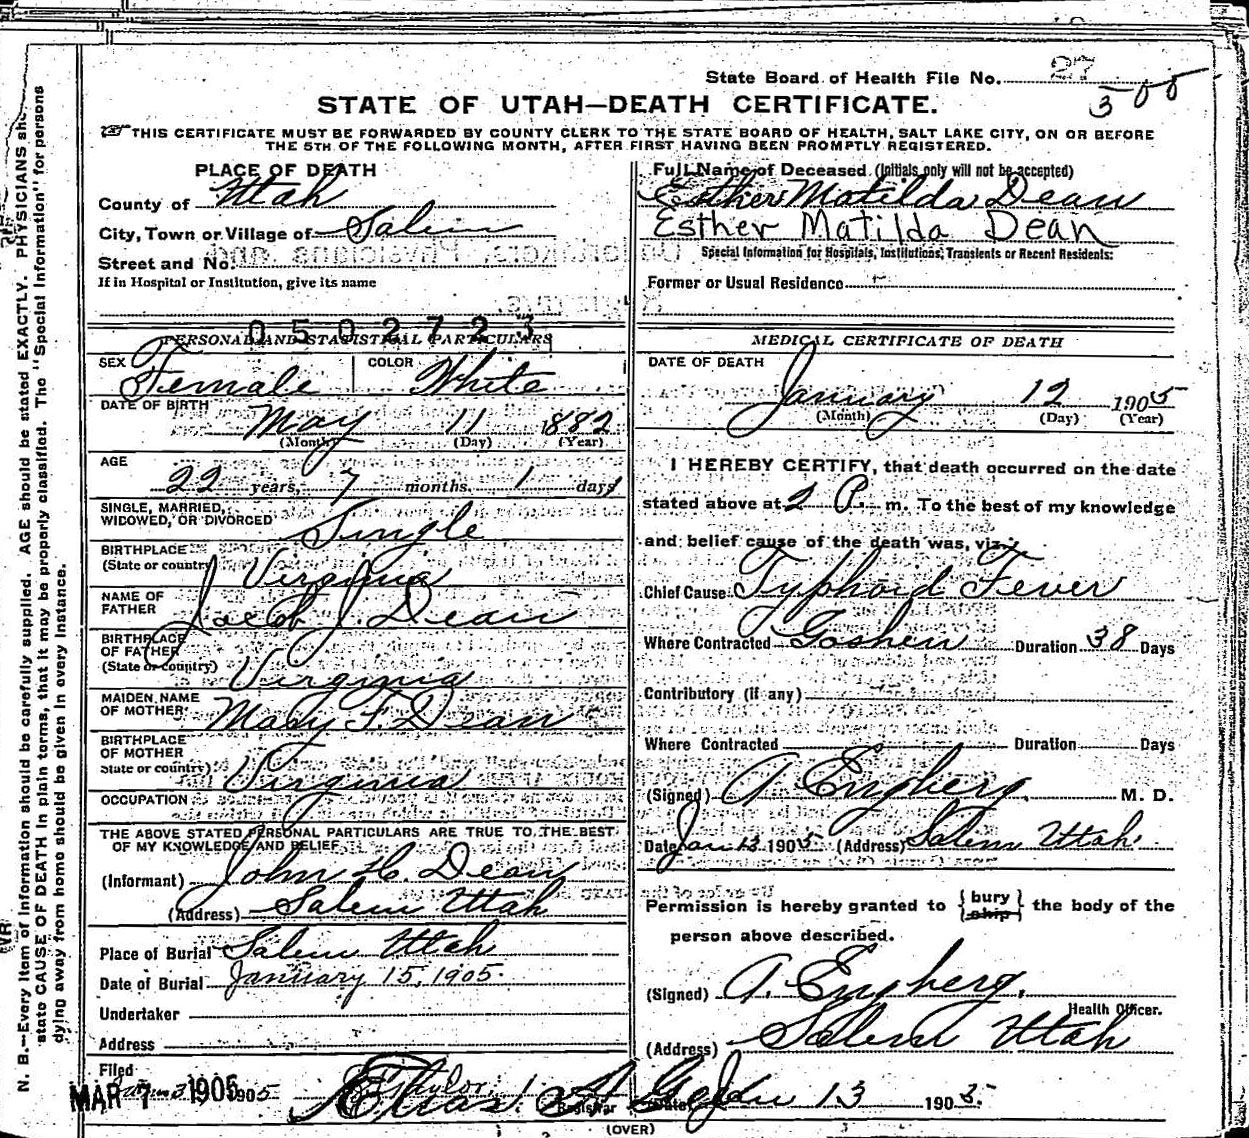 State Board of Health File No. 27
300
STATE OF UTAH—DEATH CERTIFICATE.
THIS CERTIFICATE MUST BE FORWARDED BY COUNTY CLERK TO THE STATE BOARD OF HEALTH, SALT LAKE CITY, ON OR BEFORE
THE 5TH OF THE FOLLOWING MONTH, AFTER FIRST HAVING BEEN PROMPTLY REGISTERED.
PLACE OF DEATH
County of Utah
City, Town or Village of Salem
Street and No.
If in Hospital or Institution, give its name
0502723
PERSONAL AND STATISTICAL PARTICULARS
SEX Female COLOR White
DATE OF BIRTH May 11 1882
(Month) (Day) (Year)
AGE
22 years, 7 months, 1 days
SINGLE, MARRIED,
WIDOWED, OR DIVORCED Single
BIRTHPLACE
(State or country) Virginia
NAME OF
FATHER Jacob J. Dean
BIRTHPLACE
OF FATHER
(State or country) Virginia
MAIDEN NAME
OF MOTHER Mary F. Dean
BIRTHPLACE
OF MOTHER
State or country) Virginia
OCCUPATION
THE ABOVE STATED PERSONAL PARTICULARS ARE TRUE TO THE BEST
OF MY KNOWLEDGE AND BELIEF
(Informant) John H. Dean
(Address) Salem Utah
Place of Burial Salem Utah
Date of Burial January 15, 1905.
Undertaker
Address
Filed
MAR 7 1905 1905
Full Name of Deceased (Initials only will not be accepted)
Esther Matilda Dean
Esther Matilda Dean
Special Information for Hospitals, Institutions, Transients or Recent Residents:
Former or Usual Residence
MEDICAL CERTIFICATE OF DEATH
DATE OF DEATH
January 12 1905
(Month) (Day) (Year)
I HEREBY CERTIFY, that death occurred on the date
stated above at 2 P. m. To the best of my knowledge
and belief cause of the death was, viz.:
Chief Cause Typhoid Fever
Where Contracted Goshen Duration 38 Days
Contributory (if any)
Where Contracted Duration Days
(Signed) A Engberg, M. D.
Date Jan 13 1905 (Address) Salem Utah.
Permission is hereby granted to {bury ship} the body of the
person above described.
(Signed) A. Engberg,
Health Officer.
(Address) Salem Utah
Registrar Date Jan 13 1905.
(OVER)
N. B.—Every item of information should be carefully supplied. AGE should be stated EXACTLY. PHYSICIANS
state CAUSE OF DEATH in plain terms, that it may be properly classified. The "Special Information" for persons
dying away from home should be given in every instance.